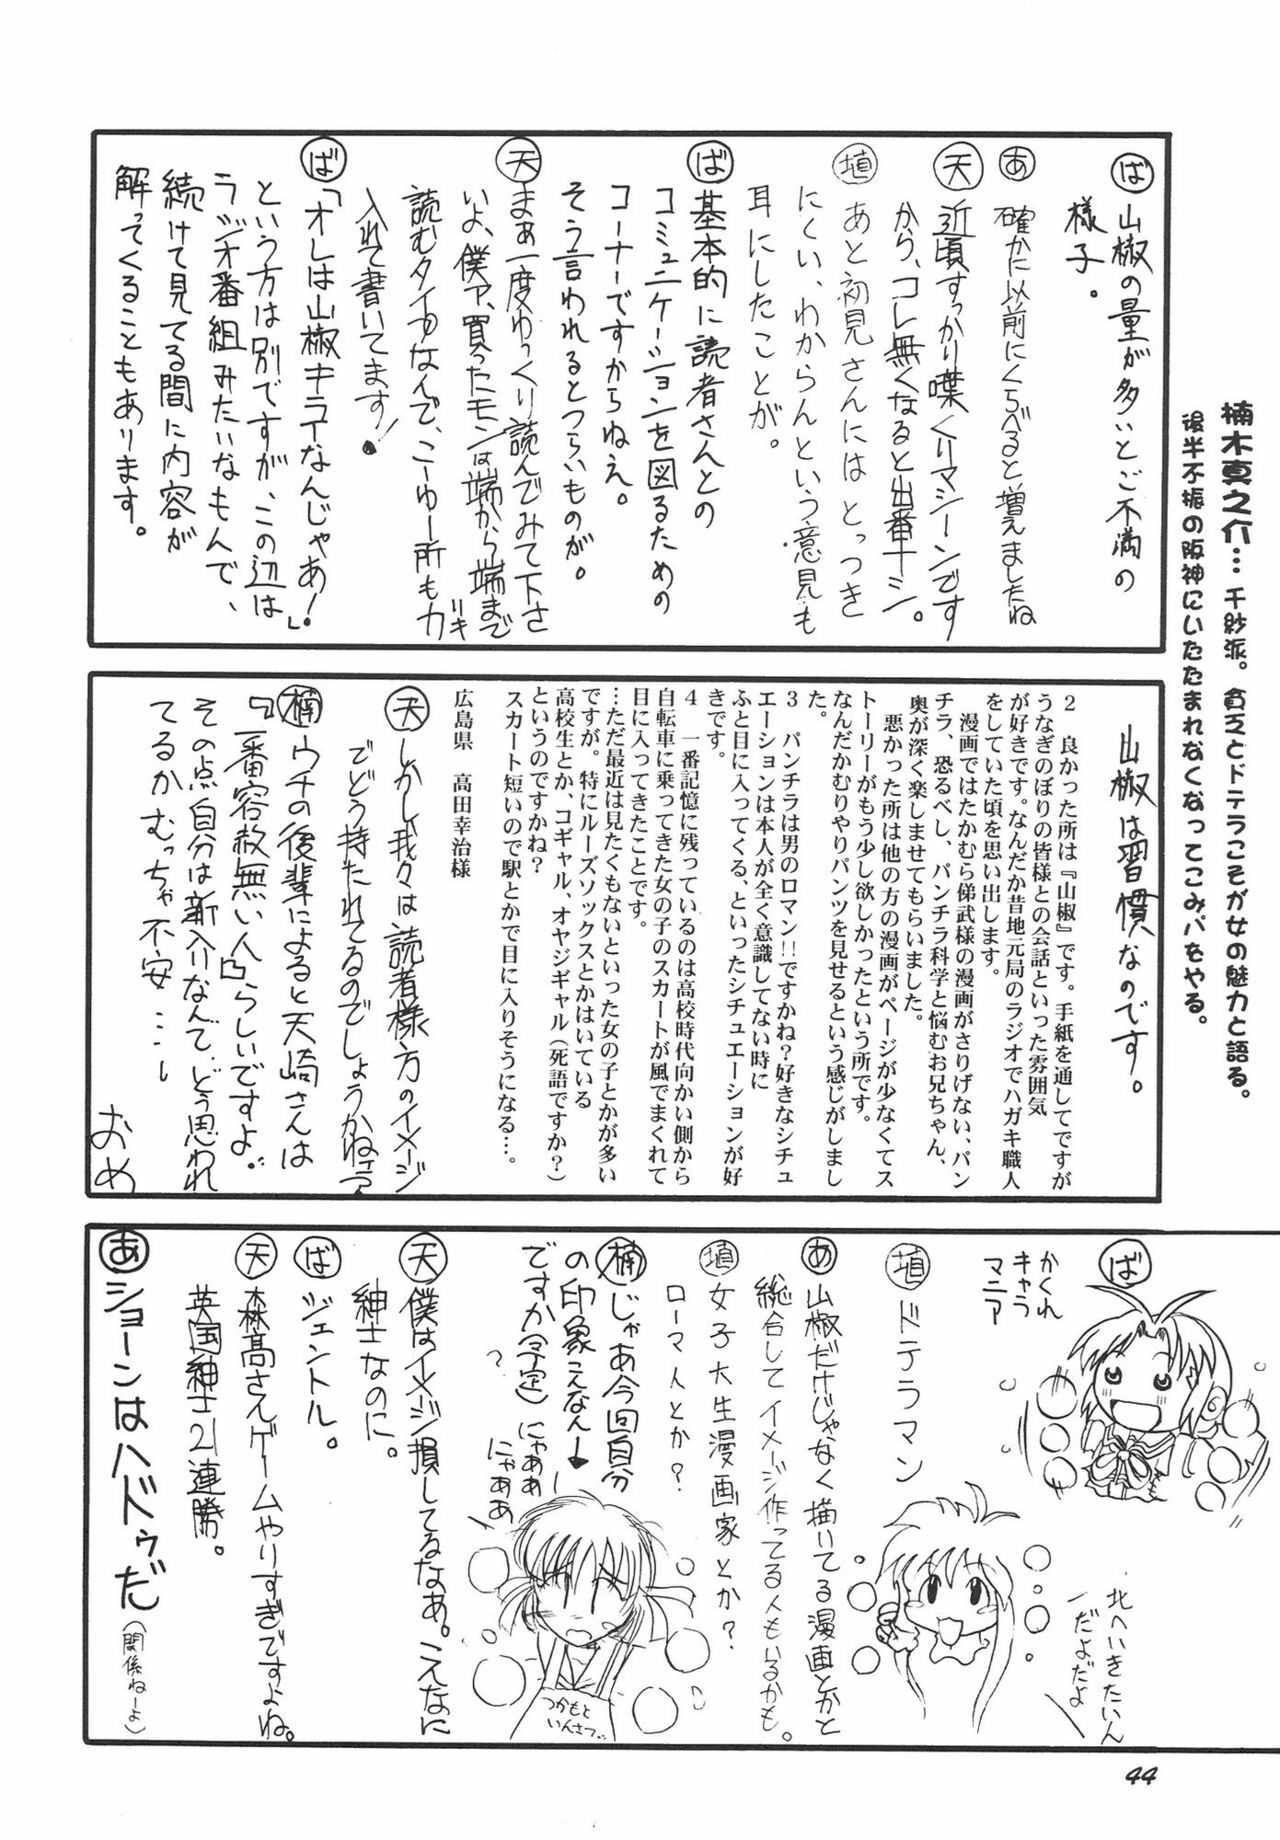 楠木真之介…千紗派。貧乏とドテラこそが女の魅力と語る。
後半不振の阪神にいたたまれなくなってこみパをやる。
ば 山椒の量が多いとご不満の
様子。
あ 確かに以前にくらべると増えましたね
天 近頃すっかり喋くりマシーンです
から、コレ無くなると出番ナシ。
埴 あと初見さんにはとっつき
にくい、わからんという意見も
耳にしたことが。
ば 基本的に読者さんとの
コミュニケーションを図るための
コーナーですからねえ。
そう言われるとつらいものが。
天 まぁ一度ゆっくり読んでみて下さ
いよ、僕ァ、買ったモンは端から端まで
読むタイプなんで、こーゆー所も力
入れて書いてます!
ば 「オレは山椒キライなんじゃあ!」
という方は別ですが、この辺は
ラジオ番組みたいなもんで、
続けて見てる間に内容が
解ってくることもあります。
山椒は習慣なのです。
2 良かった所は『山椒』です。手紙を通してですが
うなぎのぼりの皆様との会話といった雰囲気
が好きです。なんだか昔地元局のラジオでハガキ職人
をしていた頃を思い出します。
漫画ではたかむら悌武様の漫画がさりげない、パン
チラ、恐るべし、パンチラ科学と悩むお兄ちゃん、
奥が深く楽しませてもらいました。
悪かった所は他の方の漫画がページが少なくてス
トーリーがもう少し欲しかったという所です。
なんだかむりやりパンツを見せるという感じがしまし
た。
3 パンチラは男のロマン!!ですかね?好きなシチュ
エーションは本人が全く意識してない時に
ふと目に入ってくる、といったシチュエーションが好
きです。
4 一番記憶に残っているのは高校時代向かい側から
自転車に乗ってきた女の子のスカートが風でまくれて
目に入ってきたことです。
…ただ最近は見たくもないといった女の子とかが多い
ですが。特にルーズソックスとかはいている
高校生とか、コギャル、オヤジギャル(死語ですか?)
というのですかね?
スカート短いので駅とかで目に入りそうになる…。
広島県 高田幸治様
天 しかし我々は読者様方のイメージ
でどう持たれてるのでしょうかねェ
楠 ウチの後輩によると天崎さんは
『一番容赦無い人』らしいですよ。
その点自分は新入りなんで、どう思われ
てるかむっちゃ不安…
おめ
ば
かくれ
キャラ
マニア
北へいきたいん
だよだよ
埴 ドテラマン
あ 山椒だけじゃなく描いてる漫画とかと
総合してイメージ作ってる人もいるかも。
埴 女子大生漫画家とか?
ローマ人とか?
楠 じゃあ今回自分
の印象こんなん
ですか(予定)にゃぁぁ
?
にゃああ
つかもと
いんさつ
天 僕はイメージ損してるなあ。こんなに
紳士なのに。
ば ジェントル。
天 森高さんゲームやりすぎですよね。
英国紳士21連勝。
あ ショーンはハドゥだ(関係ねーよ)
44